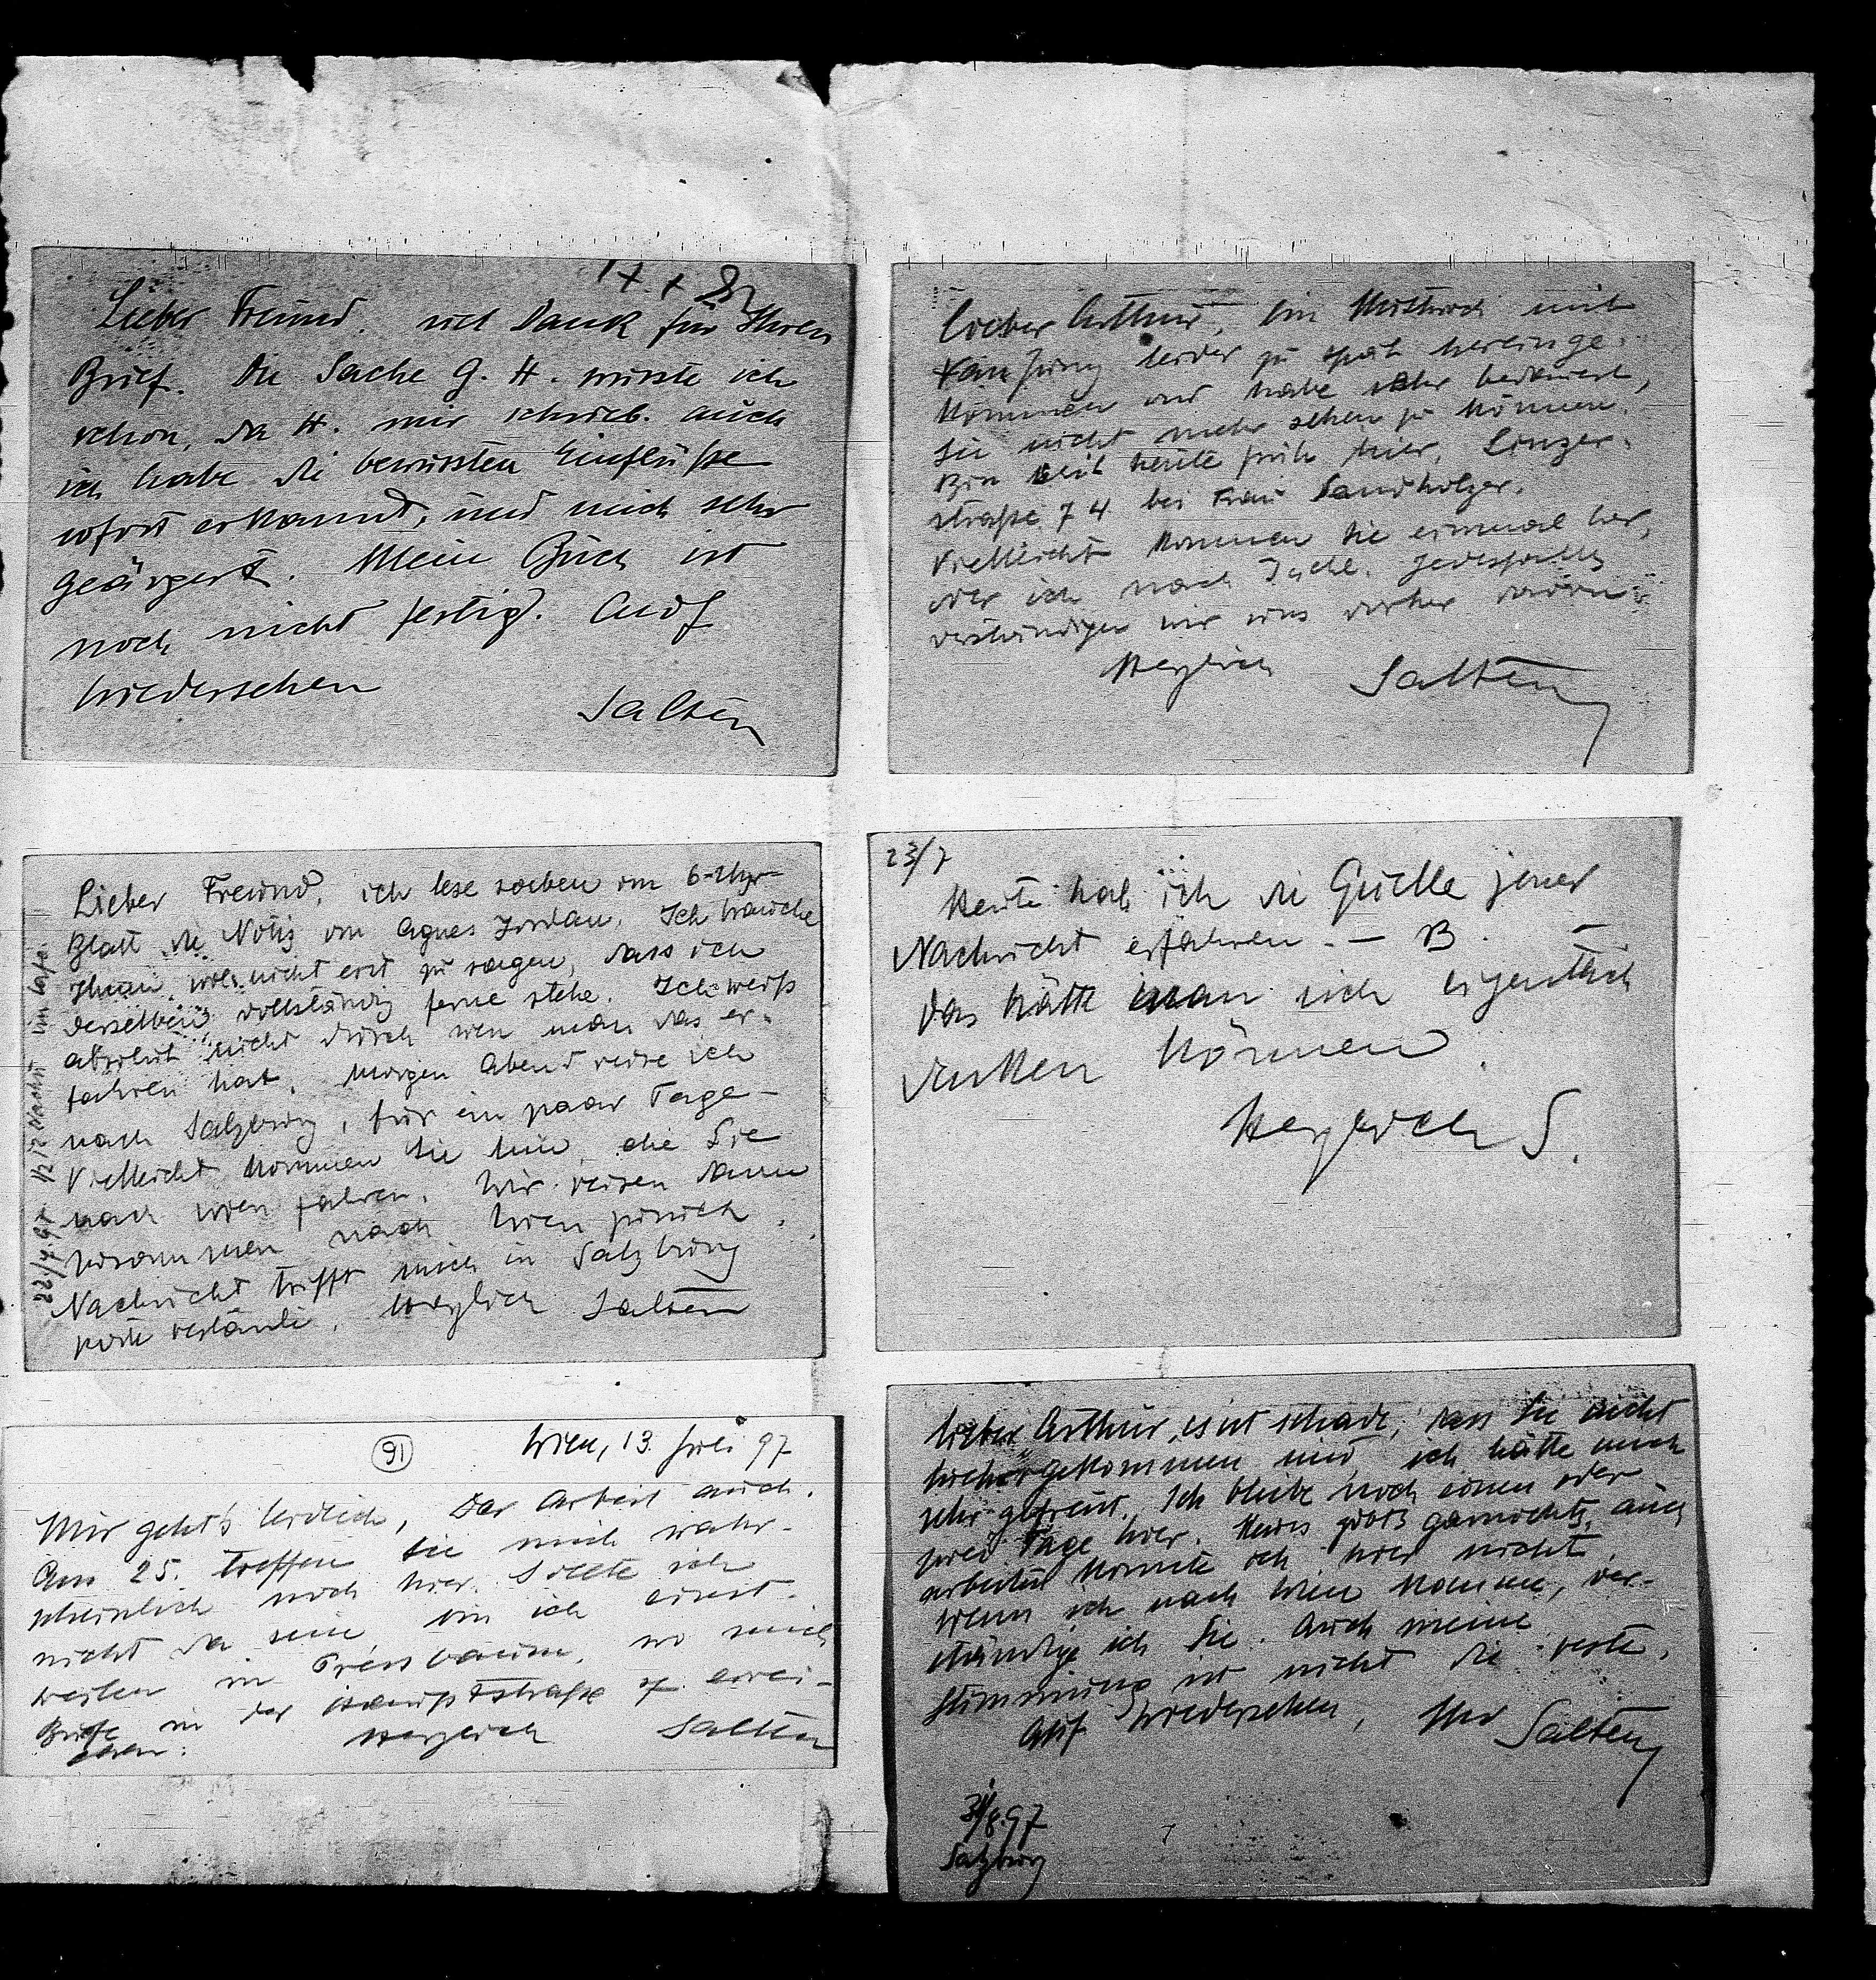 Lieber Freund. viel Dank für Ihren
Brief. Die Sache G. H. wusste ich
schon, da H. mir schrieb. Auch
ich habe die bewussten Einflüsse
sofort erkannt, und mich sehr
geärgert. Mein Buch ist
noch nicht fertig. Auf
Wiedersehen
Salten
Lieber Arthur, bin Mittwoch mit
leider zu spät hereinge-
kommen und habe sehr bedauert,
Sie nicht mehr sehen zu können.
Bin seit heute früh hier, Linzer-
straße 74 bei Frau Sandholzer.
Vielleicht kommen Sie einmal her,
oder ich nach Ischl. Jedesfalls
verständigen wir uns vorher
Herzlich Salten
Lieber Freund, ich lese soeben im 6-Uhr-
Blatt die Notiz von Agnes Jordan. Ich brauche
Ihnen wol nicht erst zu sagen, dass ich
derselben vollständig ferne stehe. Ich weiß
absolut nicht durch wen man das er-
fahren hat. Morgen Abend reise ich
nach Salzburg, für ein paar Tage –
Vielleicht kommen Sie hin, ehe Sie
nach Wien fahren. Wir reisen dann
zusammen nach Wien zurück.
Nachricht trifft mich in Salzburg
poste restante. Herzlich Salten
22/7.97 1/2 12 Nachts im Café
23/7
Heute hab ich die Quelle jener
Nachricht erfahren. – B. –
Das hätte man sich eigentlich
denken können.
Herzlich S.
91
Wien, 13. Juli 97
Mir geht's leidlich, der Arbeit auch.
Am 25. treffen Sie mich wahr-
scheinlich noch hier. Sollte ich
nicht da sein, bin ich einst-
weilen in Pressbaum, wo mich
Briefe in der Hauptstraße 7. errei-
chen.
Herzlich Salten
Lieber Arthur, es ist schade, dass Sie nicht
hieher gekommen sind, ich hätte mich
sehr gefreut. Ich bleibe noch einen oder
zwei Tage hier. Heiss gemacht, auch
arbeiten konnte ich hier nicht.
Wenn ich nach Wien komme, ver-
ständige ich Sie. Auch meine
Stimmung ist nicht die beste.
Auf Wiedersehen, Ihr Salten
31/8.97
Salzburg